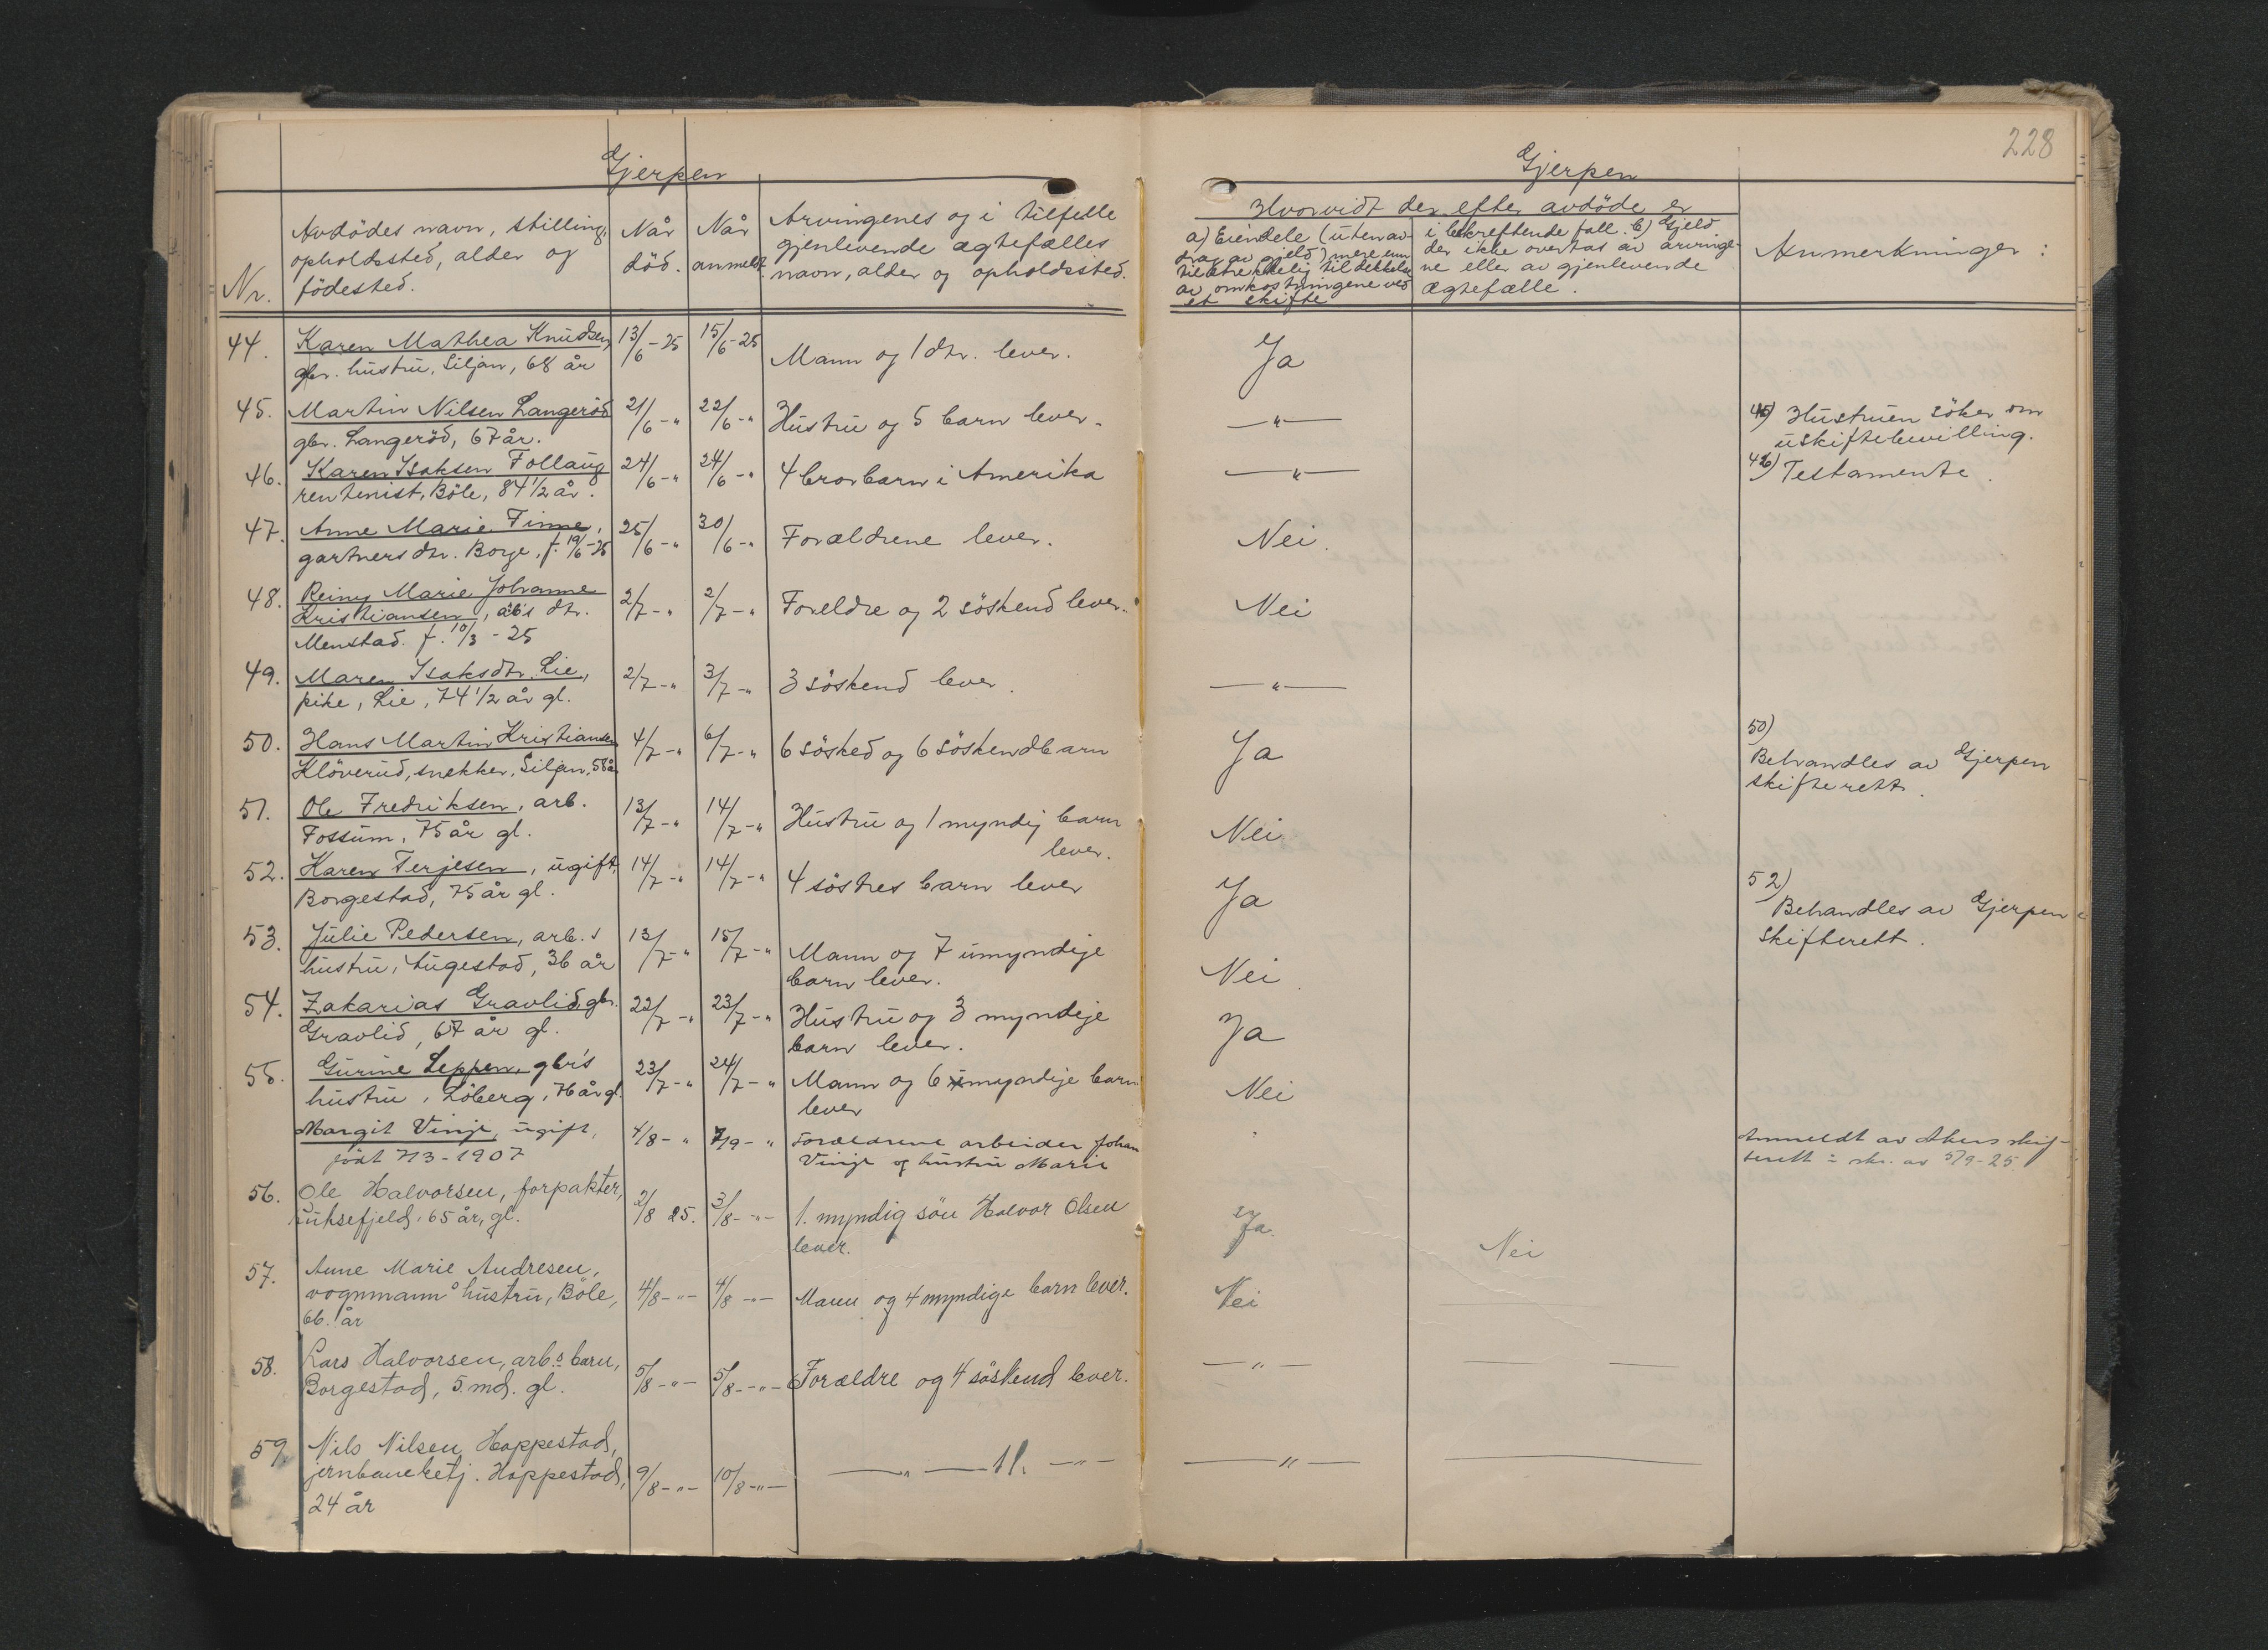 Gjerpen
Nr.
Avdödes navn, stilling,
opholdssted, alder og
födested.
Når
död.
Når
anmeldt.
Arvingenes og i tilfelle
gjenlevende ægtefælles
navn, alder og opholdssted.
44.
Karen Mathea Knudsen
gbr. hustru, Siljan, 68 år
13/6-25
15/6-25
Mann og 1 dtr. lever.
45.
Martin Nilsen Langeröd
gbr. Langeröd, 67 år.
21/6-"
22/6-"
Hustru og 5 barn lever.
46.
Karen Isaksen Follaug
rentenist, Böle, 84 1/2 år.
24/6-"
24/6-"
4 brorbarn i Amerika
47.
Anne Marie Finne,
gartners dtr. Borge, f. 19/6-25
25/6-"
30/6-"
Forældrene lever.
48.
Reiny Marie Johanne
Kristiansen, ab's dtr.
Menstad. f. 10/3-25
2/7-"
2/7-"
Foreldre og 2 söskend lever.
49.
Maren Isaksdtr. Lie,
pike, Lie, 74 1/2 år gl.
2/7-"
3/7-"
3 söskend lever.
50.
Hans Martin Kristiansen
Klöverud, snekker, Siljan, 58 år
4/7-"
6/7-"
6 sösked og 6 söskendbarn
51.
Ole Fredriksen, arb.
Fossum, 75 år gl.
13/7-"
14/7-"
Hustru og 1 myndig barn
lever.
52.
Karen Terjesen, ugift,
Borgestad, 75 år gl.
14/7-"
14/7-"
4 söstres barn lever
53.
Julie Pedersen, arb.s
hustru, Augestad, 36 år
13/7-"
15/7-"
Mann og 7 umyndige
barn lever.
54.
Zakarias Gravlid, gbr.
Gravlid, 67 år gl.
22/7-"
23/7-"
Hustru og 3 myndige
barn lever.
55.
Gurine Leppen, gbr's
hustru, Löberg, 76 år gl.
23/7-"
24/7-"
Mann og 6 myndige barn
lever
Margit Vinje, ugift,
födt 7/3-1907
4/8-"
7/9-"
Forældrene arbeider Johan
Vinje og hustru Marie
56.
Ole Halvorsen, forpakter,
65 år, gl.
2/8 25.
3/8-"-
1. myndig sön Halvor Olsen
lever.
57.
Anne Marie Andresen,
vognmanns hustru, Böle,
66. år
4/8-"-
4/8-"-
Mann og 4 myndige barn lever.
58.
Lars Halvorsen, arb.s barn,
Borgestad, 5. md. gl.
5/8-"-
5/8-"-
Forældre og 4 söskend lever.
59.
Nils Nilsen Hoppestad,
jernbanebetj. Hoppestad,
24 år
9/8-"-
10/8-"-
—"— 11. —"—
228
Gjerpen
Hvorvidt der efter avdöde er
a) Eiendele (uten av-
drag av gjeld) mere enn
tilstrekkelig til dekkelse
av omkostningene ved
et skifte
i bekreftende fall. b) Gjeld
der ikke overtas av arvinge-
ne eller av gjenlevende
ægtefælle.
Anmerkninger:
Ja
—"—
45) Hustruen söker om
uskiftebevilling.
—"—
46) Testamente.
Nei.
Nei
—"—
Ja
50)
Behandles av Gjerpen
skifterett.
Nei
Ja
52)
Behandles av Gjerpen
skifterett.
Nei.
Ja
Nei
Anmeldt av Akers skif-
terett i skr. av 5/9-25
Ja.
Nei
Nei
—"—
—"—